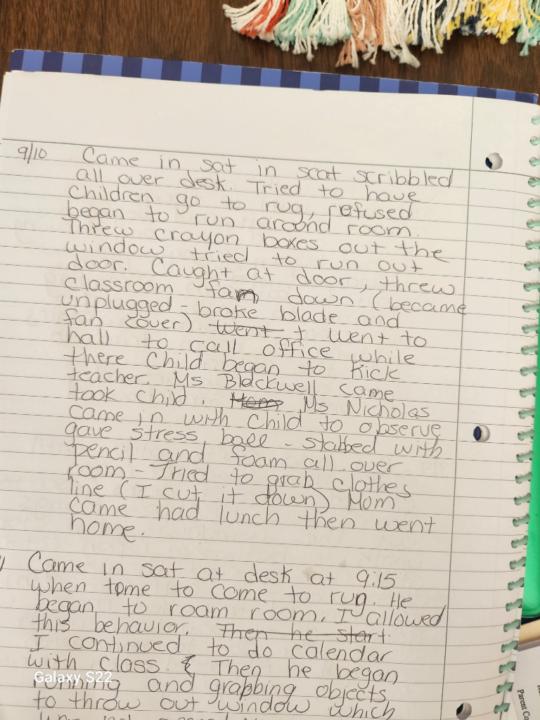 9/10 Came in sat in scat scribbled
all over desk. Tried to have
children go to rug, refused
began to run around room.
Threw crayon boxes out the
window tried to run out
door. Caught at door, threw
classroom fan down (became
unplugged - broke blade and
fan cover) went I went to
hall to call office while
there child began to kick
teacher. Ms Blackwell came
took child. Mom Ms Nicholas
came in with child to observe
gave stress ball - stabbed with
pencil and foam all over
room - Tried to grab clothes
line (I cut it down) Mom
came had lunch then went
home.
Came in sat at desk at 9:15
when time to come to rug. He
began to roam room. I allowed
this behavior. Then he start
I continued to do calendar
with class. & Then he began
running and grabbing objects
to throw out window which
Galaxy S22
Parent Co